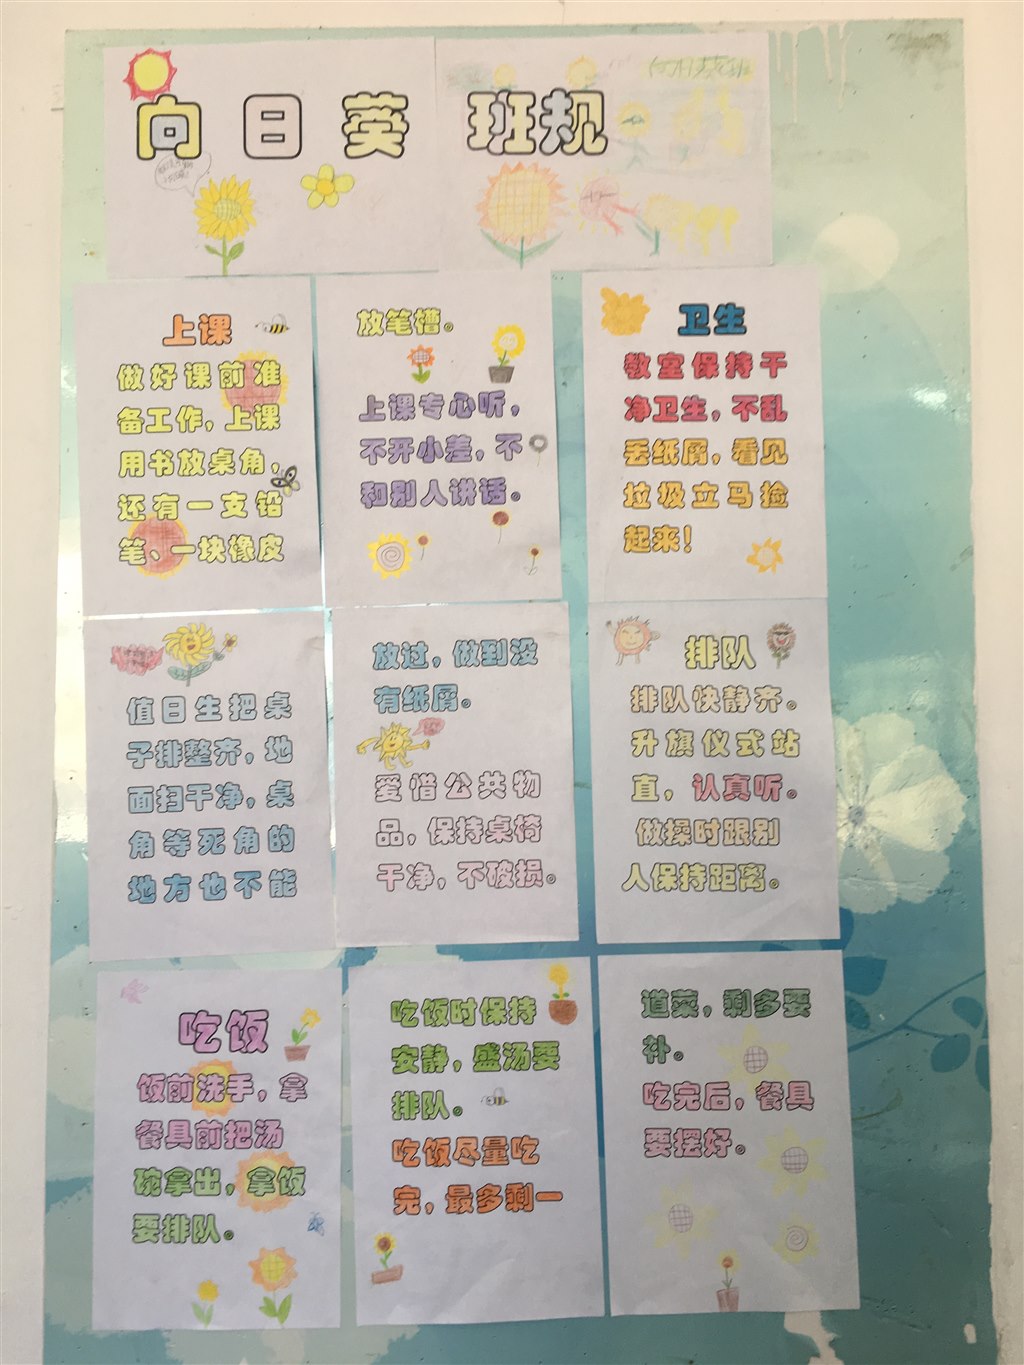 向日葵 班规
上课
做好课前准
备工作，上课
用书放桌角，
还有一支铅
笔、一块橡皮
放笔槽。
上课专心听，
不开小差，不
和别人讲话。
卫生
教室保持干
净卫生，不乱
丢纸屑，看见
垃圾立马捡
起来！
值日生把桌
子排整齐，地
面扫干净，桌
角等死角的
地方也不能
放过，做到没
有纸屑。
爱惜公共物
品，保持桌椅
干净，不破损。
排队
排队快静齐。
升旗仪式站
直，认真听。
做操时跟别
人保持距离。
吃饭
饭前洗手，拿
餐具前把汤
碗拿出，拿饭
要排队。
吃饭时保持
安静，盛汤要
排队。
吃饭尽量吃
完，最多剩一
道菜，剩多要
补。
吃完后，餐具
要摆好。